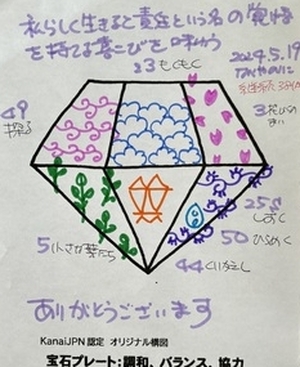 私らしく生きると責任という名の覚悟
を持てる喜こびを味わう
23 もくもく
2024.5.19
49
探る
3 花びの
まい
258
しずく
50 ひらめく
44 くりかえし
5 小さな葉たち
ありがとうございます
KanaiJPN 認定 オリジナル構図
宝石プレート：調和、バランス、協力